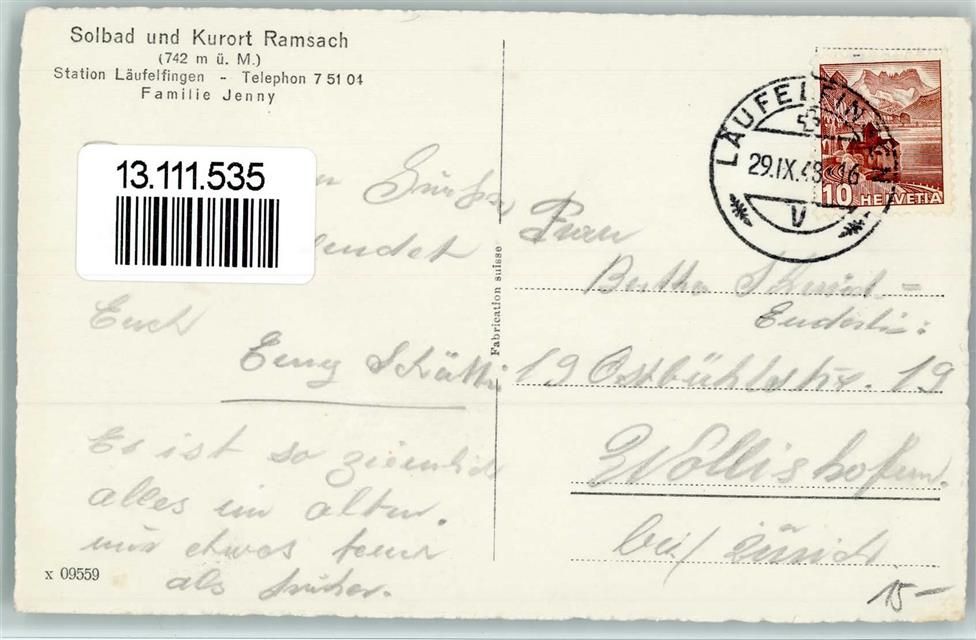 Solbad und Kurort Ramsach
(742 m ü. M.)
Station Läufelfingen - Telephon 7 51 04
Familie Jenny
13.111.535
Grüße
sendet
Euch
Emy
Es ist so ziemlich
alles im alten.
nur etwas teurer
als früher.
x 09559
Fabrication suisse
LÄUFELFINGEN
29.IX.48.-16
V
10 HELVETIA
Frau
Bertha
19 Ostbühlstr. 19
Wollishofen.
bei/ Zürich
15-